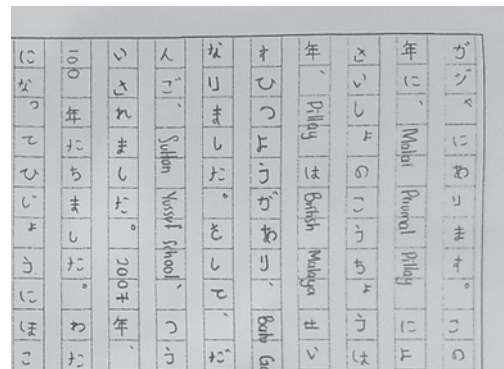 ガジャにあります。この
年に、Malai Pirumal Pillay によ
さいしょのこうちょうは
年、Pillay は British Malaya せい
すひつようがあり、Batu Ga
なりました。そして、だ
んご、Sultan Yussuf School、つう
いされました。2007年、
100年たちました。わた
になってひじょうにほこ